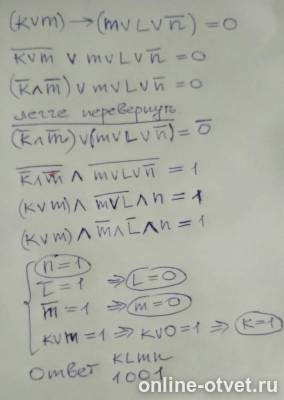 (K∨m) → (m∨L∨n̅) = 0
K̅∨̅m̅ ∨ m∨L∨n̅ = 0
(K̅∧m̅) ∨ m∨L∨n̅ = 0
легче перевернуть
(̅K̅∧̅m̅)̅∨̅(̅m̅∨̅L̅∨̅n̅)̅ = 0̅
K̅∧̅m̅ ∧ m̅∨̅L̅∨̅n̅ = 1
(K∨m) ∧ m̅∨̅L̅ ∧ n = 1
(K∨m) ∧ m̅ ∧ L̅ ∧ n = 1
{ n=1
L̅=1 ⇒ L=0
m̅=1 ⇒ m=0
K∨m=1 ⇒ K∨0=1 ⇒ K=1
Ответ KLmn
1001
online-otvet.ru